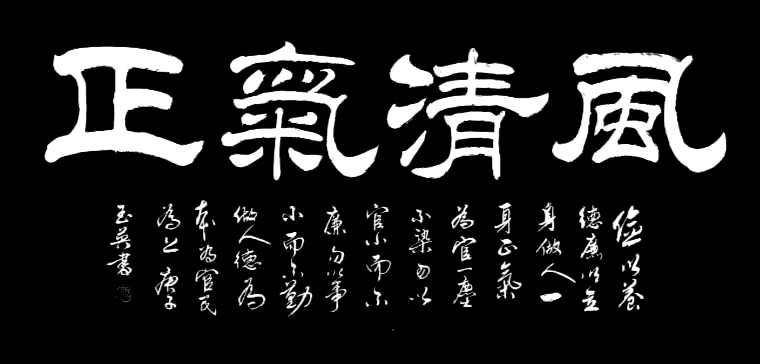 風清氣正
儉以養
德廉以立
身做人一
身正氣
為官一塵
不染勿以
官小而不
廉勿以事
小而不勤
做人德為
本為官民
為上庚子
玉英書